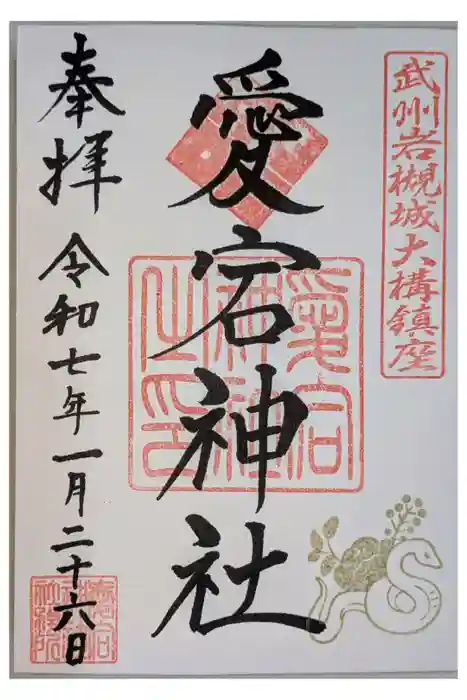 武州岩槻城大構鎮座
愛宕神社
愛宕
神社
之印
奉拝
令和七年一月二十六日